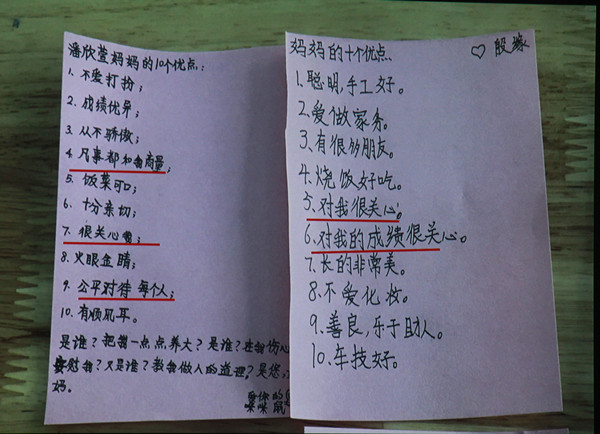 潘欣萱妈妈的10个优点:
1. 不爱打扮;
2. 成绩优异;
3. 从不骄傲;
4. 凡事都和我商量;
5. 饭菜可口;
6. 十分亲切;
7. 很关心我;
8. 火眼金睛;
9. 公平对待每个人;
10. 有顺风耳。
是谁?把我一点点养大?是谁?在我伤心
安慰我?又是谁?教我做人的道理?是您,
妈。
妈妈的十个优点
♡ 殷
1.聪明,手工好。
2.爱做家务。
3.有很多朋友。
4.烧饭好吃。
5.对我很关心。
6.对我的成绩很关心。
7.长的非常美。
8.不爱化妆。
9.善良,乐于助人。
10.车技好。